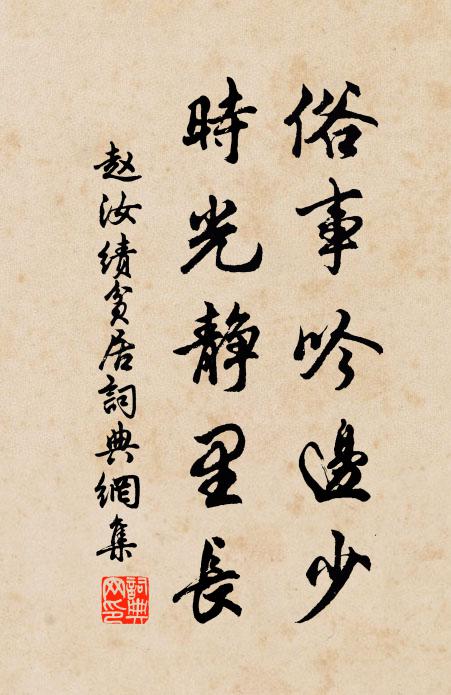 俗事吟邊少
時光静里長
赵汝績貧居詞典網集
詞典網印